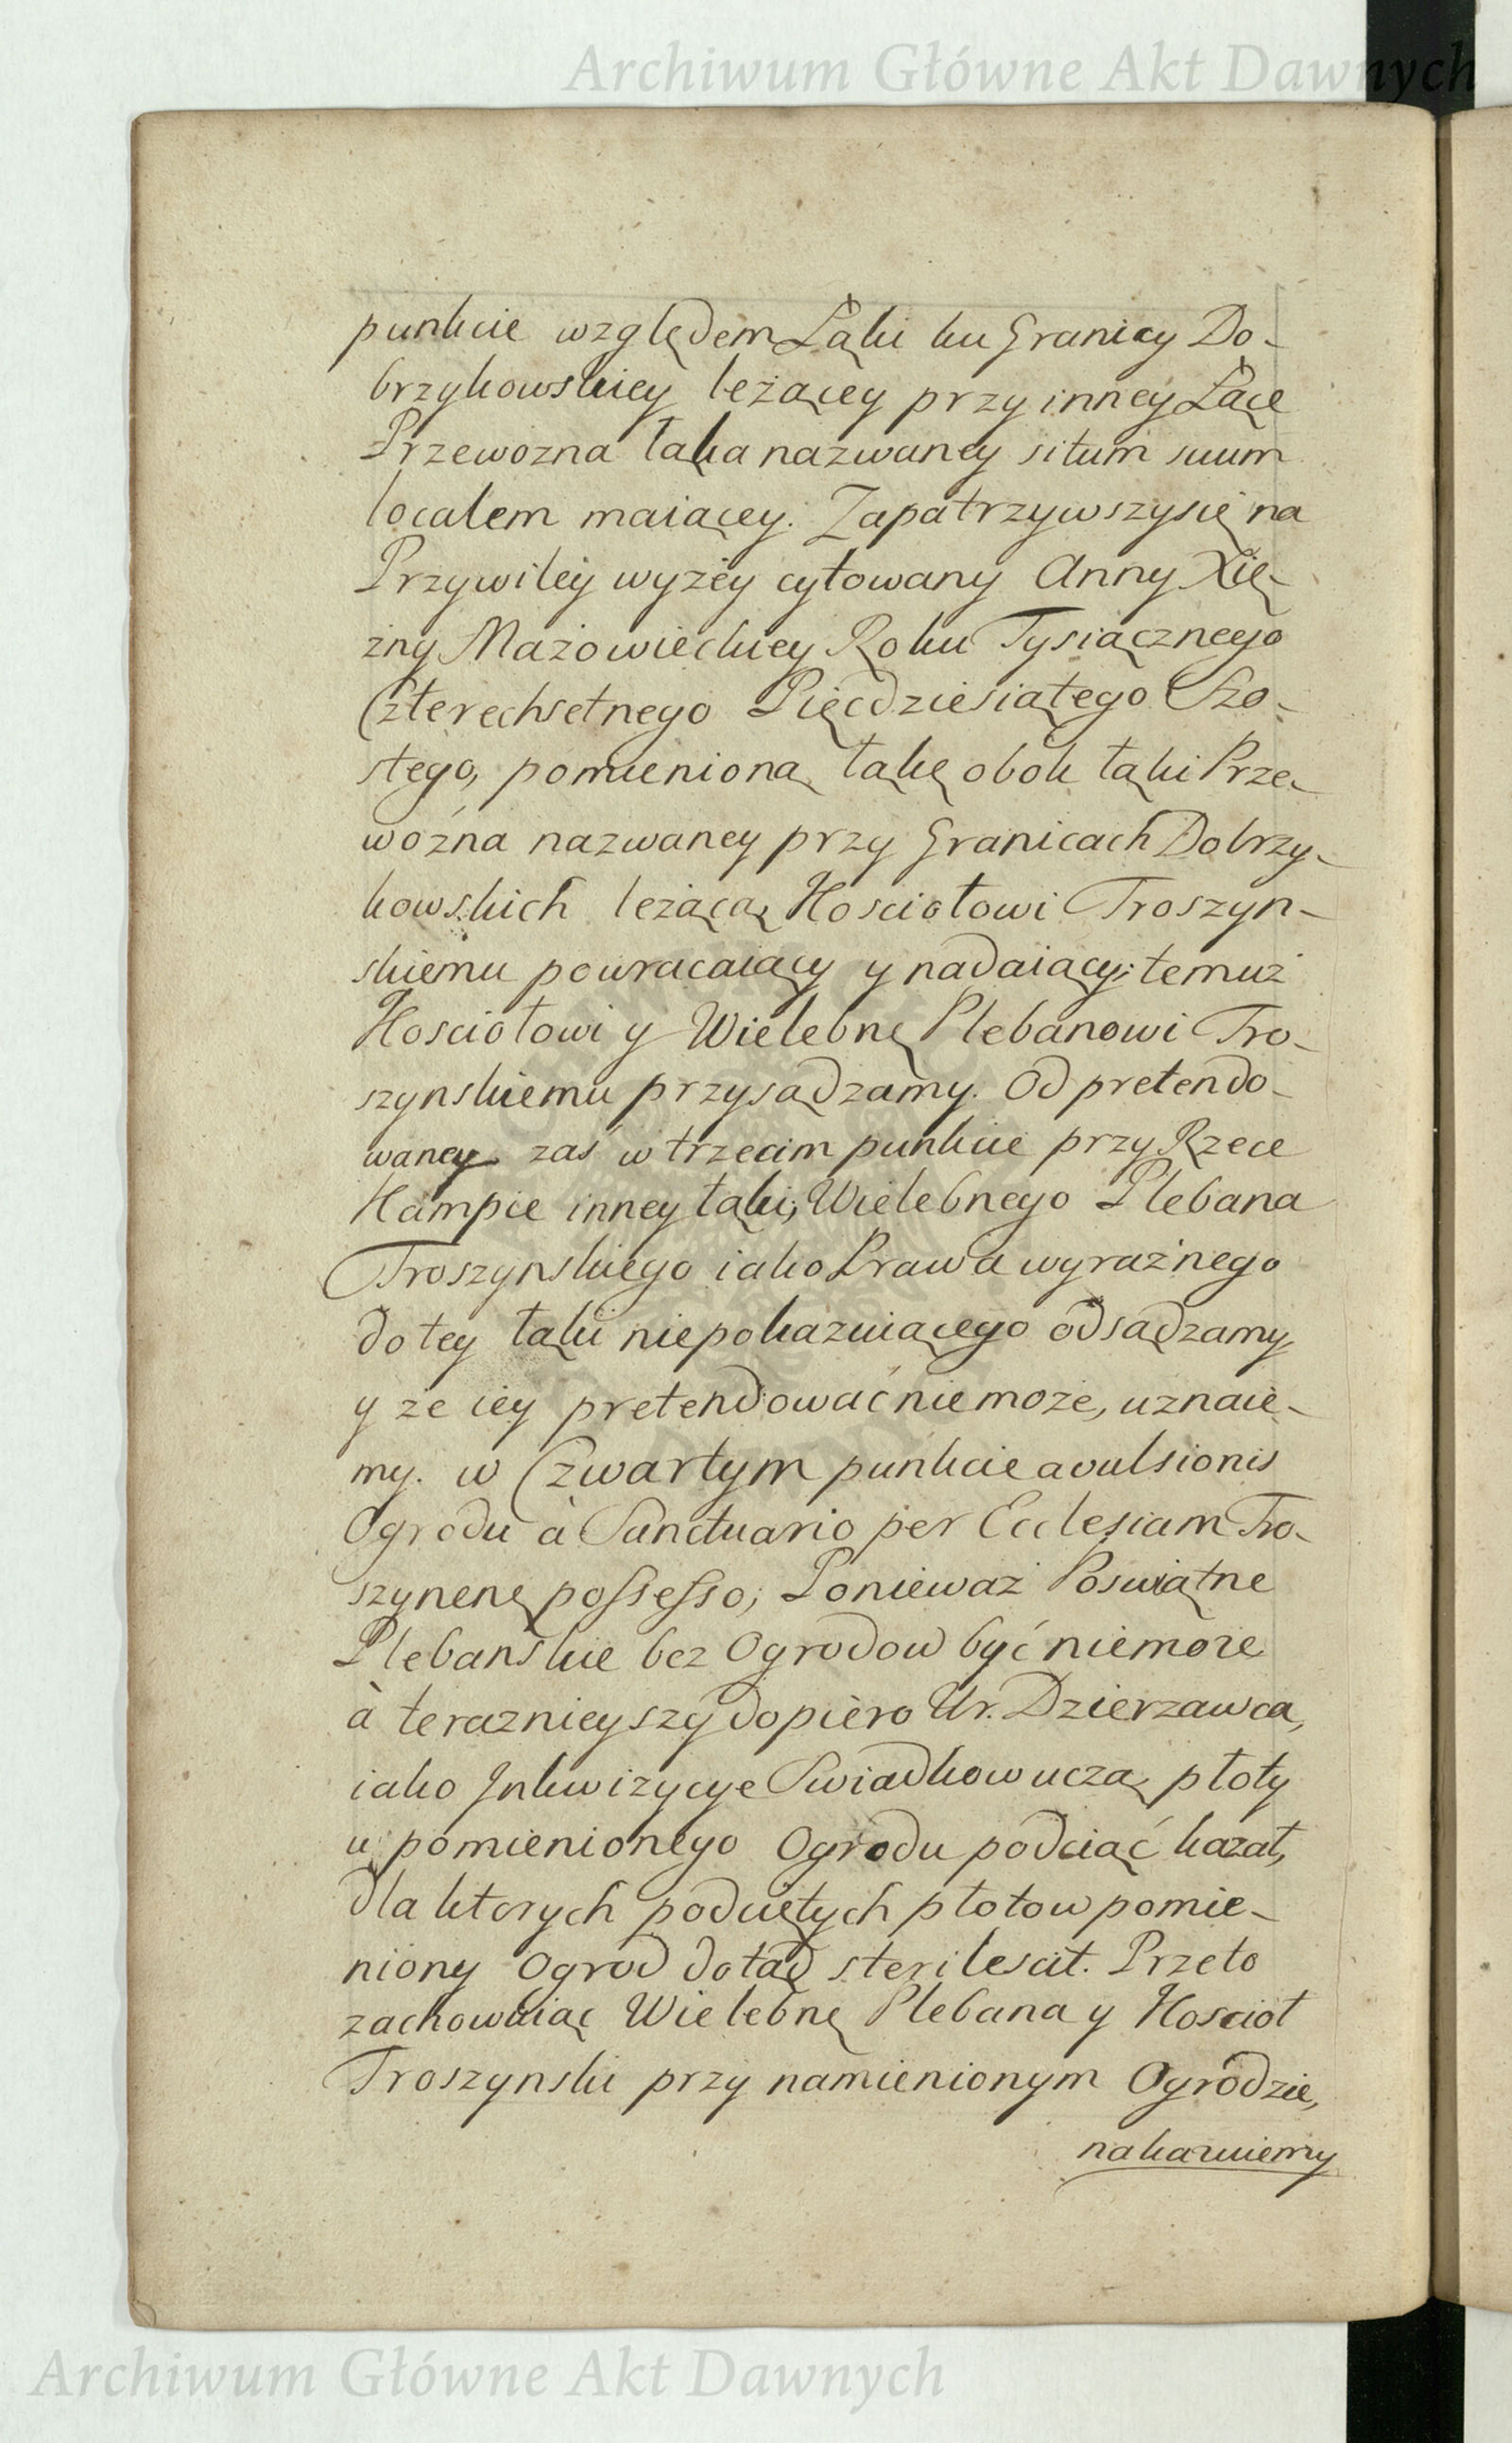 Archiwum Główne Akt Dawnych
punkcie względem Łąki ku Granicy Do-
brzykowskiey leżącey przy inney Łące
Przewozna łąka nazwaney situm suum
localem maiącey. Zapatrzywszysię na
Przywiley wyżey cytowany Anny Xię-
żny Mazowieckiey Roku Tysiącznego
Czterechsetnego Pięcdziesiątego Szo-
stego, pomienioną łąkę obok łąki Prze-
woźna nazwaney przy Granicach Dobrzy-
kowskich leżącą, Kosciołowi Troszyn-
skiemu powracaiący y nadaiący; temuż
Kosciołowi y Wielebnę Plebanowi Tro-
szynskiemu przysądzamy. Od pretendo-
waney zaś w trzecim punkcie przy Rzece
Kampie inney łąki, Wielebnego Plebana
Troszynskiego iako Prawa wyraźnego
do tey łąki niepokazuiącego odsądzamy,
y że iey pretendować niemoże, uznaie-
my. w Czwartym punkcie avulsionis
Ogrodu à Sanctuario per Ecclesiam Tro-
szynenę possesso; Ponieważ Poswiątne
Plebańskie bez Ogrodow być niemoże
à teraznieyszy dopiero Ur. Dzierzawca,
iako Inkwizycye Swiadkow uczą, płoty
u pomienionego Ogrodu podciąć kazał,
dla ktorych podciętych płotow pomie-
niony Ogrod dotąd sterilescit. Przeto
zachowuiąc Wielebnę Plebana y Kosciół
Troszynski przy namienionym Ogrodzie,
nakazuiemy
Archiwum Główne Akt Dawnych